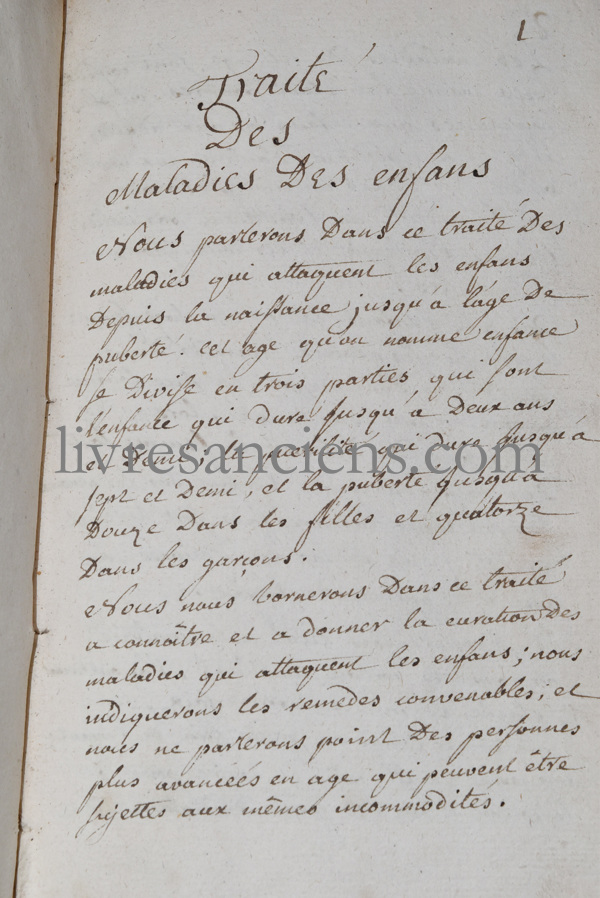 1
Traité
Des
Maladies Des enfans
Nous parlerons Dans ce traité Des
maladies qui attaquent les enfans
Depuis la naissance jusqu'à lage De
puberté. cet age qu'on nomme enfance
se Divise en trois parties qui sont
l'enfance qui dure jusqu'à Deux ans
et Demi; la puerilité qui dure jusqu'à
sept et Demi, et la puberté jusqu'à
Douze Dans les filles et quatorze
Dans les garçons.
Nous nous bornerons Dans ce traité
a connoître et a donner la curation Des
maladies qui attaquent les enfans; nous
indiquerons les remedes convenables; et
nous ne parlerons point Des personnes
plus avanceés en age qui peuvent être
sujettes aux mêmes incommodités.
livresanciens.com